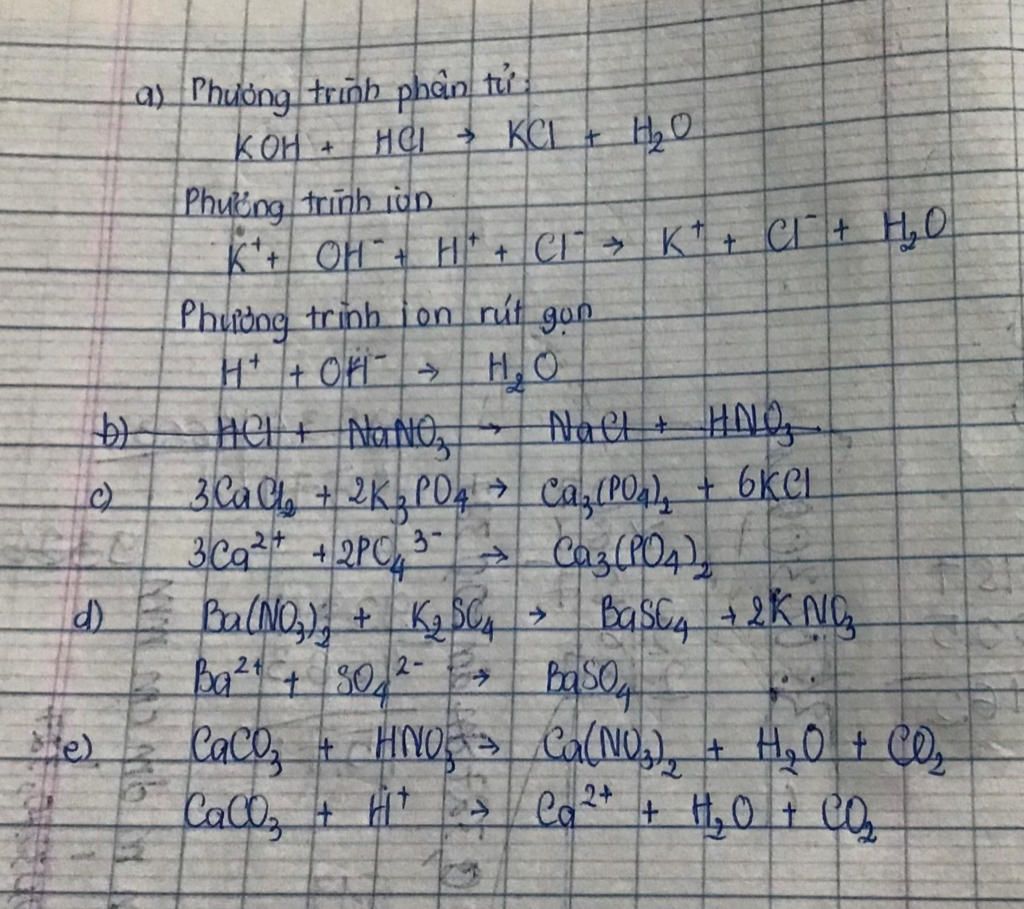 a) Phương trình phân tử:
KOH + HCl → KCl + H₂O
Phương trình ion
K⁺ + OH⁻ + H⁺ + Cl⁻ → K⁺ + Cl⁻ + H₂O
Phương trình ion rút gọn
H⁺ + OH⁻ → H₂O
b) HCl + NaNO₃ → NaCl + HNO₃
c) 3CaCl₂ + 2K₃PO₄ → Ca₃(PO₄)₂ + 6KCl
3Ca²⁺ + 2PO₄³⁻ → Ca₃(PO₄)₂
d) Ba(NO₃)₂ + K₂SO₄ → BaSO₄ + 2KNO₃
Ba²⁺ + SO₄²⁻ → BaSO₄
e) CaCO₃ + HNO₃ → Ca(NO₃)₂ + H₂O + CO₂
CaCO₃ + H⁺ → Ca²⁺ + H₂O + CO₂